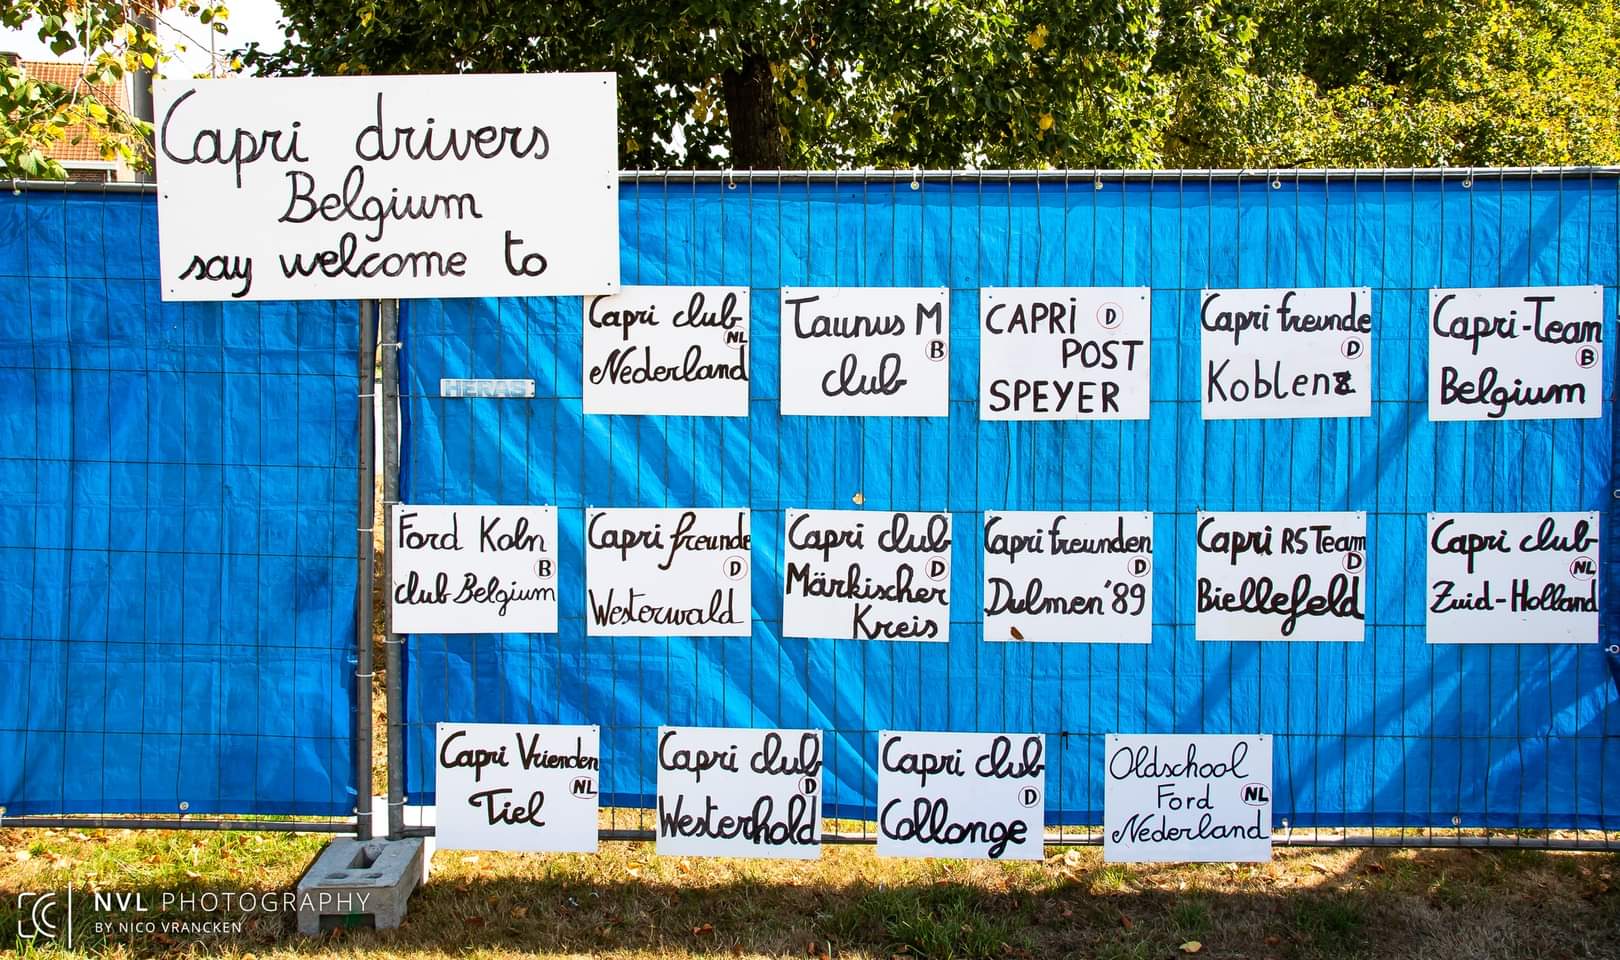 Capri drivers
Belgium
say welcome to
HERAS
Capri club
NL
Nederland
Taunus M
B
club
CAPRi D
POST
SPEYER
Capri freunde
D
Koblenz
Capri-Team
B
Belgium
Ford Koln
B
club Belgium
Capri freunde
D
Westerwald
Capri club
D
Märkischer
Kreis
Capri freunden
D
Dulmen '89
Capri RS Team
D
Biellefeld
Capri club
NL
Zuid-Holland
Capri Vrienden
NL
Tiel
Capri club
D
Westerhold
Capri club
D
Collonge
Oldschool
Ford NL
Nederland
NVL PHOTOGRAPHY
BY NICO VRANCKEN